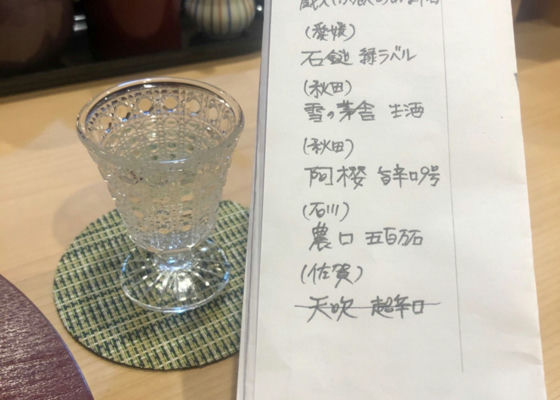 (愛媛)
石鎚 緑ラベル
(秋田)
雪の茅舎 生酒
(秋田)
阿櫻 旨辛口9号
(石川)
農口 五百万石
(佐賀)
天吹 超辛口